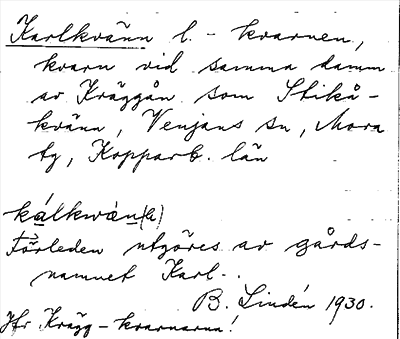 Karlkvänn l. -kvarnen,
kvarn vid samma damm
av Kräggån som Stikå-
kvänn, Venjans sn, Mora
tg, Kopparb. län
kálkwàn(h)
Förleden utgöres av gårds-
namnet Karl-.
B. Lindén 1930.
Jfr Krägg-kvarnarna!